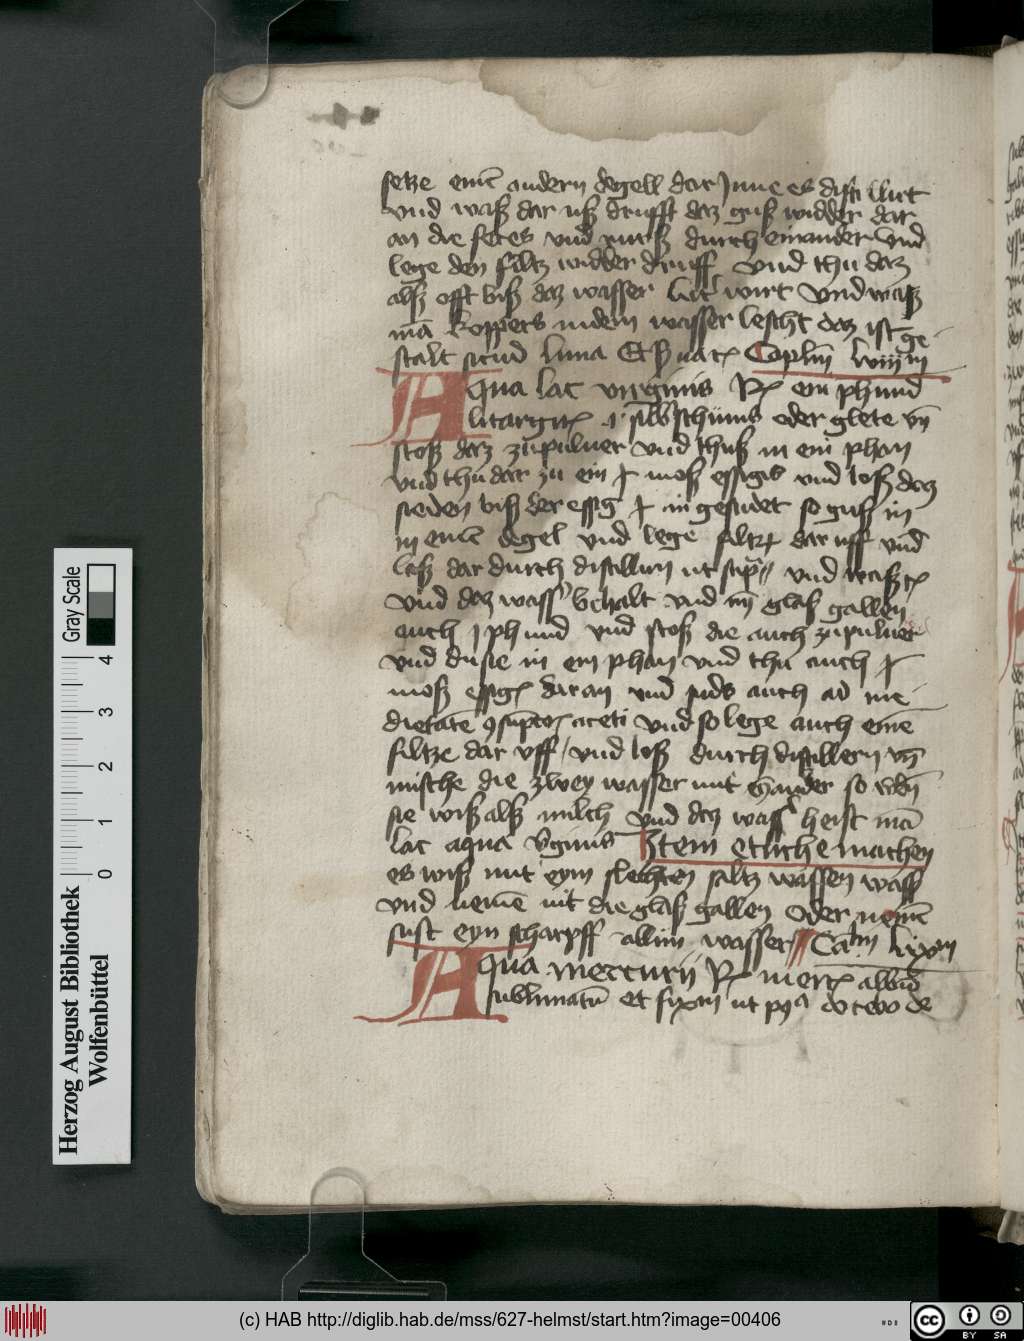 setze einē andern degell dar Jnne es distillirt
vnd waß dar uß drufft daz guß widder dar
an die feces vnd rurß durch einander vnd
lege den filtz widder druff vnd thu daz
alß offt biß daz wasser wirt vnd waß
mā koppers in dem wasser lescht daz ist ge
stalt sicud luna Et Caplm̄ lviij m
Aqua lac virginis Rx ein phund
litargirȝ silbˢschüms oder glete vn̄
stoß daz zu puluer vnd thuß in ein phan
vnd thu dar zu ein moß essigis vnd loß daz
sieden biß der essig in gesudet so guß in
in einē degel vnd lege filtz dar uff vnd
laß dar durch distillirn ut supᵃ vnd
vnd daz wassˢ behalt vnd nȳ glaß gallen
auch j phund vnd stoß die auch zu puluer
vnd du sie in ein phan vnd thu auch
moß essigȝ dar an vnd suds auch ad me
dietatē aceti vnd so lege auch eine
filtze dar vff vnd loß durch distillern vn̄
mische die zwey wasser mit einander so
sie wiß alß milch vnd daz wassˢ heist mā
lac aqua v̄ginis Item etliche machen
es wiß mit eym slechten saltz wassen wass
vnd nemē nit die glaß gallen oder nemē
sust eyn scharpff allun wasser Caᵐ lix m
Aqua mercurij Rx mercȝ albūd
sublimatū et fixan ut de
(c) HAB http://diglib.hab.de/mss/627-helmst/start.htm?image=00406
Herzog August Bibliothek
Wolfenbüttel
Gray Scale
0 1 2 3 4
cc BY SA